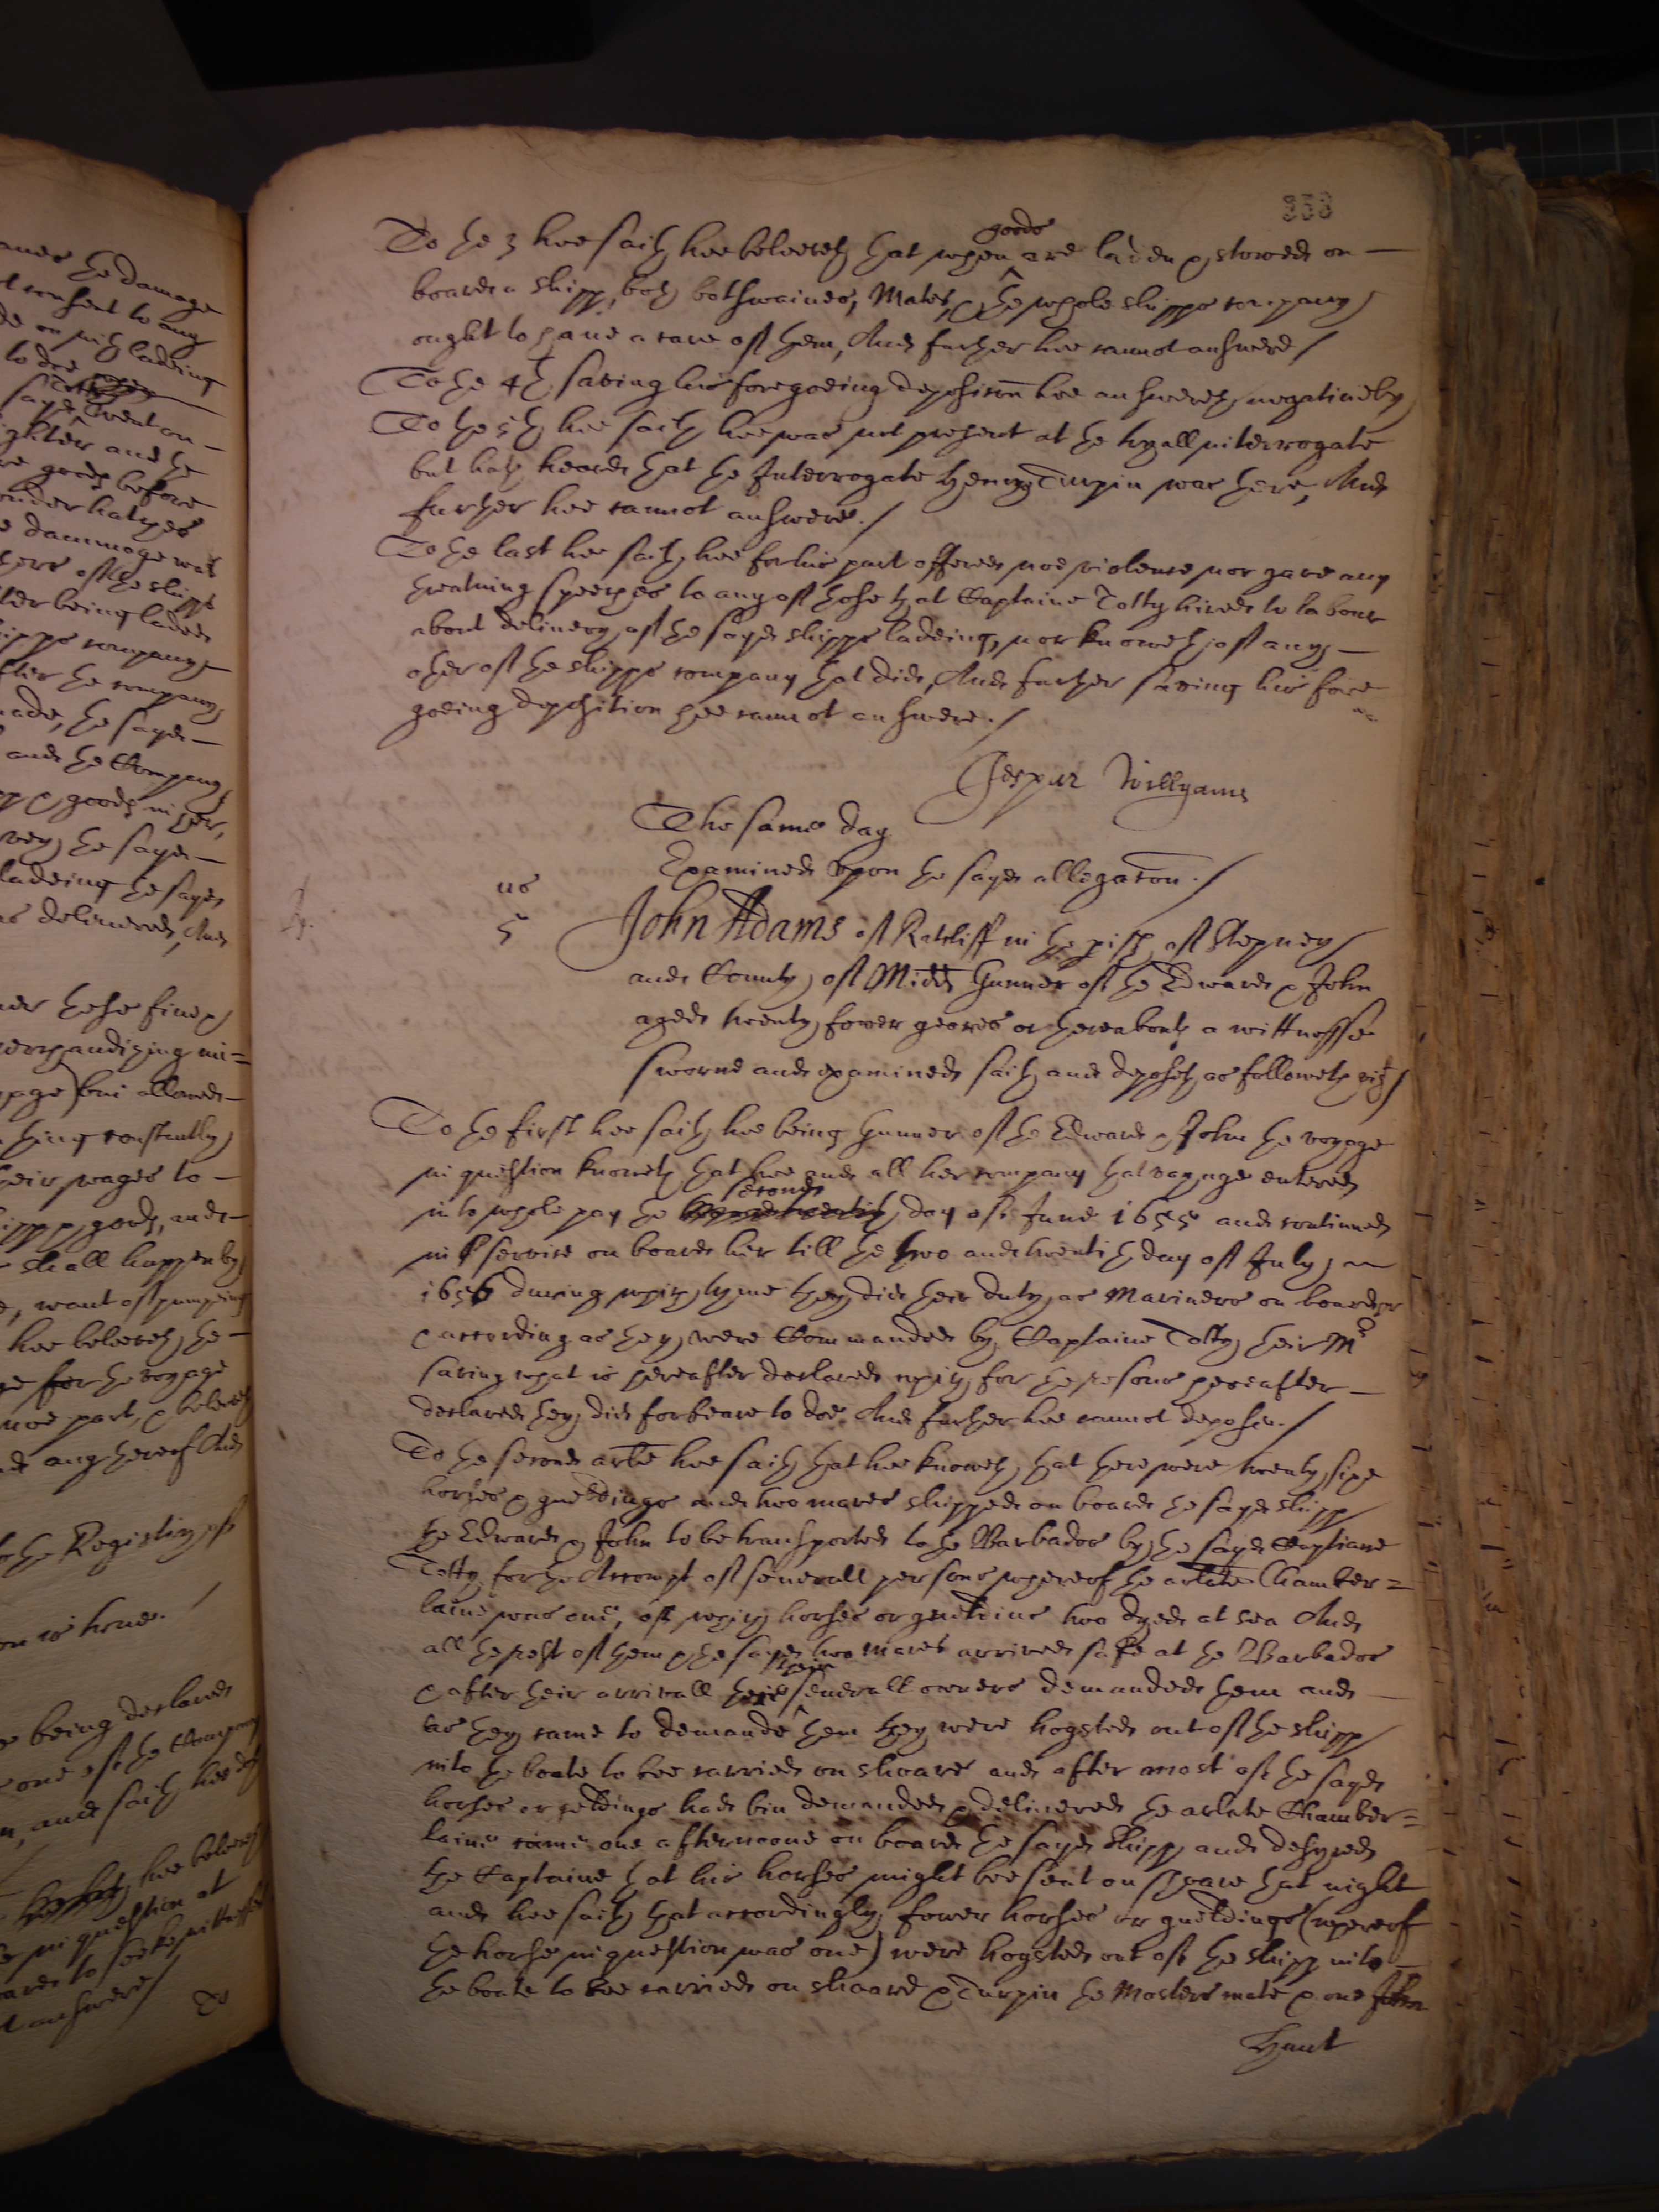 333
To the 3 hee saith hee beleeveth that when goods are laden & stowed on
board a shipp, both botswaines, Mates, & the whole shipps company
ought to have a care of them, And further hee cannot answere /
To the 4th saving his foregoeing deposicon hee answereth negatively
To the 5th hee saith hee was not present at the tryall interrogate
but hath heard that the Interrogate Henry Turpin was there, And
further hee cannot answere. /
To the last hee saith hee for his part offered noe violence nor gave any
threatning speeches to any of those that Captaine Totty hired to labour
about delivery of the sayd shipps ladeing, nor knoweth of any
other of the shipps company that did, And further saving his fore
goeing deposition hee cannot answere. /
Jespur Willyams
The same day
Examined upon the sayd allegacon. /
us
5
John Adams of Ratcliff in the pish of Stepney
and County of Midd Gunner of the Edward & John
aged twenty fower yeares or thereabouts a wittnesse
sworne and examined saith and deposeth as followeth vizt /
To the first hee saith hee being Gunner of the Edward & John the voyage
in question knoweth that hee and all her company that voyage entered
into whole pay the second day of June 1655 and continued
in service on board her till the two and twentith day of July
1656 during which tyme they did their duty as Mariners on board her
& according as they were Commanded by Captaine Totty their Mr
saving what is hereafter declared which for the resons hereafter
declared they did forbeare to doe And further hee cannot depose. /
To the second arte hee saith that hee knoweth that there were twenty sixe
horses & gueldings and two mares shipped on board the sayd shipp
the Edward & John to be transported to the Barbados by the sayd Captiane
Totty for the Accompt of severall persons whereof the arlate Chamber=
laine was one, of which horses or gueldins two dyed at sea And
all the rest of them & the sayd two mares arrived safe at the Barbados
& after their arrivall their severall owners demanded them and
as they came to demande them they were hoysted out of the shipp
into the boate to bee carried on shoare and after most of the sayd
horses or geldings had bin demanded & delivered the arlate Chamber=
laine came one afternoone on board the sayd shipp and desyred
the Captaine that his horses might bee sent on shoare that night
and hee saith that accordingly fower horses or gueldings (whereof
the horse in question was one) were hoysted out of the shipp into
the boate to bee carried on shoare & Turpin the Masters mate & one John
Hunt